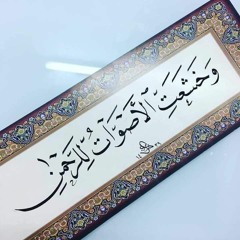 وَخَشَعَتِ ٱلْأَصْوَاتُ لِلرَّحْمَٰنِ